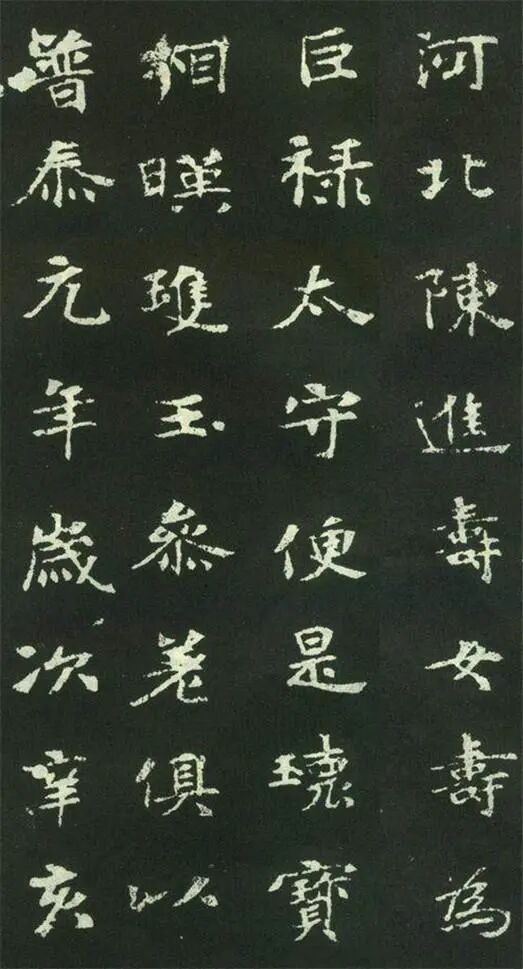 河北陳進壽女壽為
巨禄太守便是瓌寶
相暎璡玉叅差俱以
普泰元年歲次辛亥